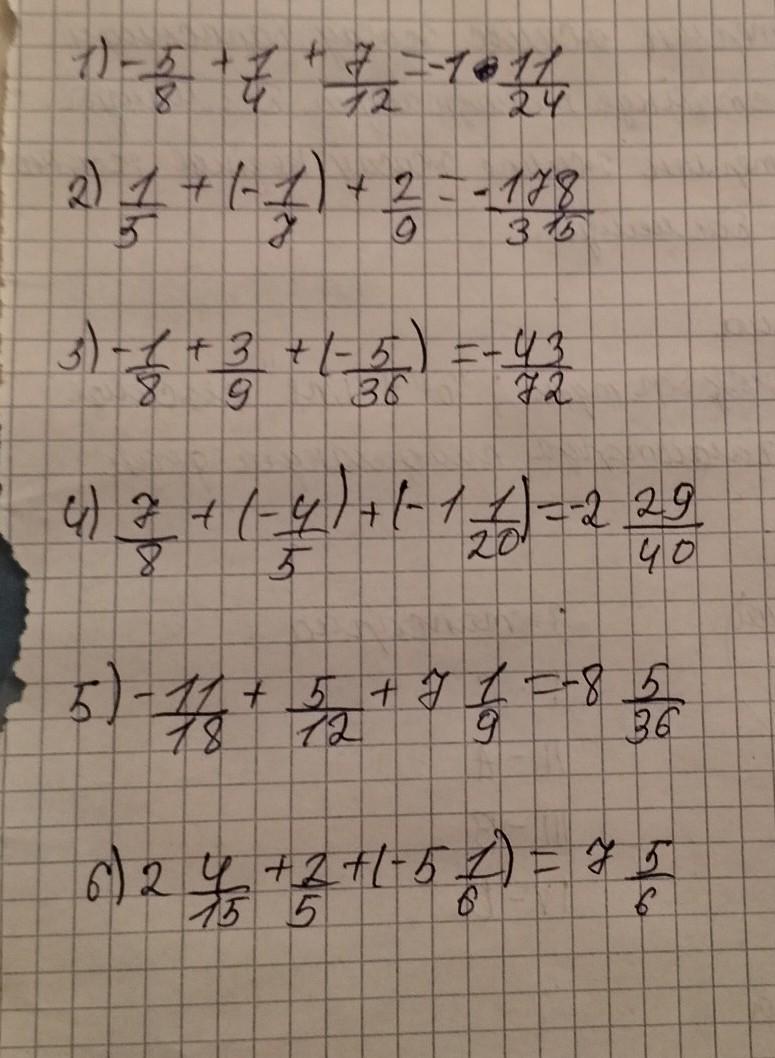 1) -5/8 + 1/4 + 7/12 = -1 11/24
2) 1/5 + (-1/7) + 2/9 = -178/315
3) -1/8 + 3/9 + (-5/36) = -43/72
4) 7/8 + (-4/5) + (-1 1/20) = -2 29/40
5) -11/18 + 5/12 + 7 1/9 = -8 5/36
6) 2 4/15 + 2/5 + (-5 1/6) = 7 5/6